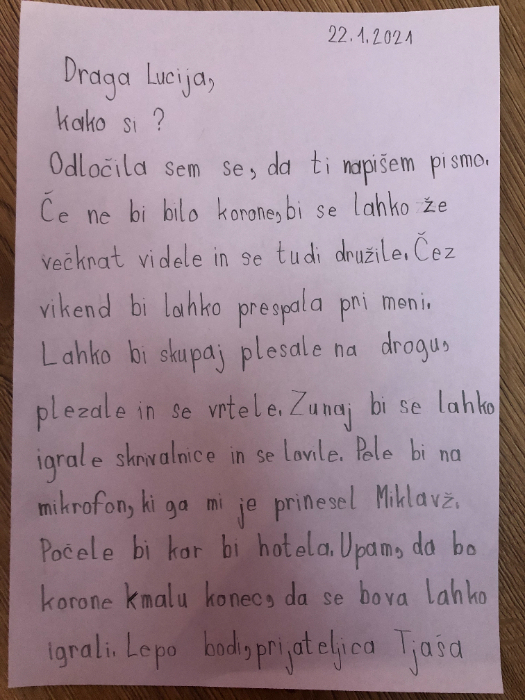 22.1.2021
Draga Lucija,
kako si ?
Odločila sem se, da ti napišem pismo.
Če ne bi bilo korone, bi se lahko že
večkrat videle in se tudi družile. Čez
vikend bi lahko prespala pri meni.
Lahko bi skupaj plesale na drogu,
plezale in se vrtele. Zunaj bi se lahko
igrale skrivalnice in se lovile. Pele bi na
mikrofon, ki ga mi je prinesel Miklavž.
Počele bi kar bi hotela. Upam, da bo
korone kmalu konec, da se bova lahko
igrali. Lepo bodi, prijateljica Tjaša